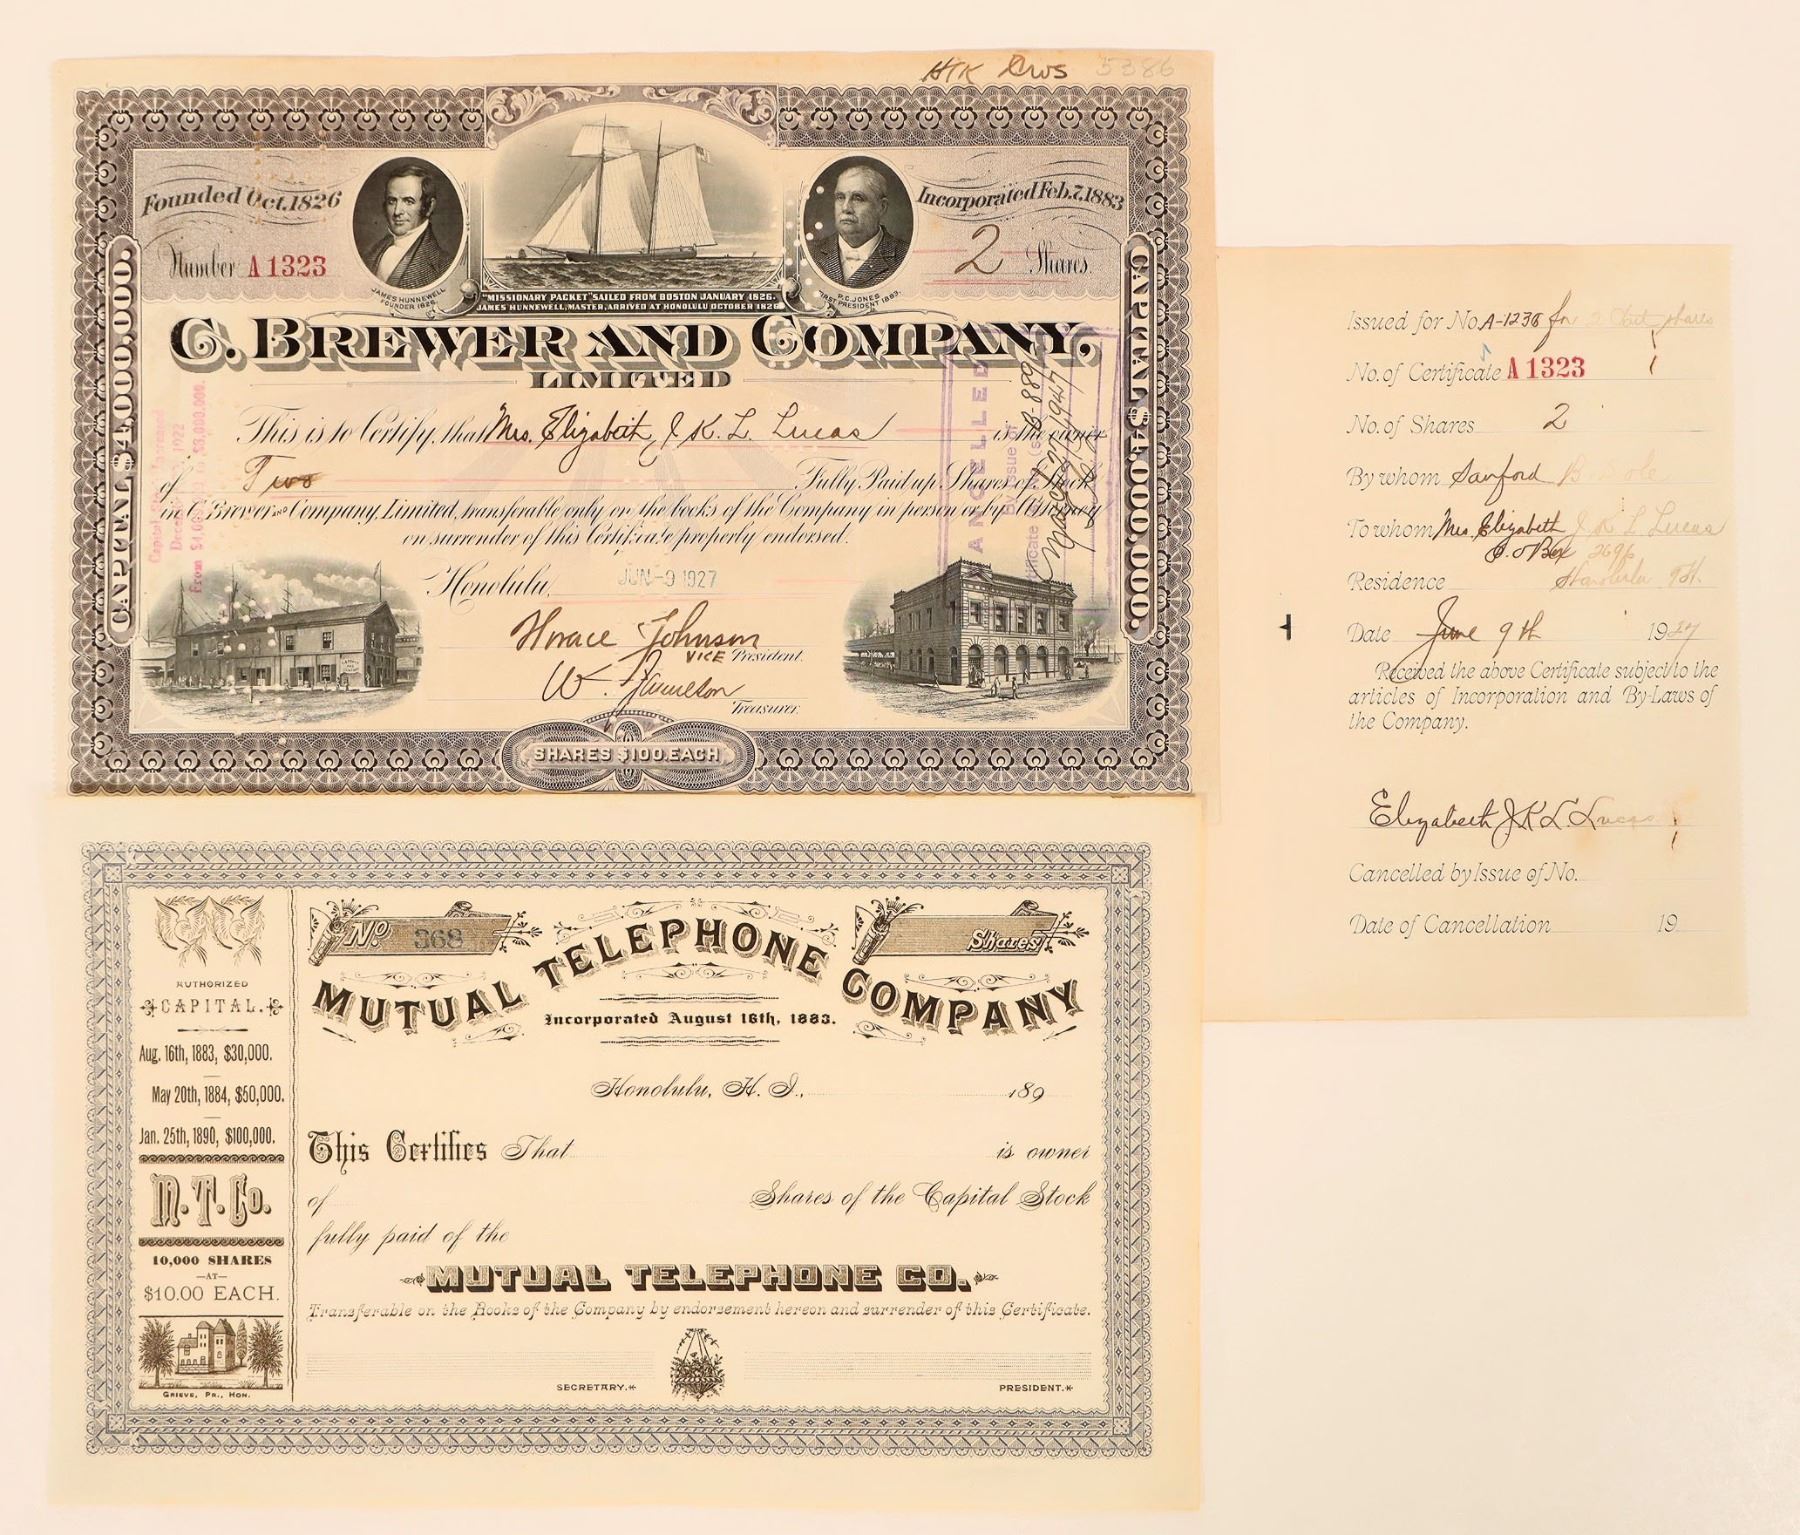 HK RWS 5386
Founded Oct. 1826
Incorporated Feb. 7, 1883
Number A 1323
2 Shares.
JAMES HUNNEWELL
FOUNDER 1826.
P. C. JONES
FIRST PRESIDENT 1883.
"MISSIONARY PACKET" SAILED FROM BOSTON JANUARY 1826.
JAMES HUNNEWELL, MASTER, ARRIVED AT HONOLULU OCTOBER 1826
CAPITAL $4,000,000.
CAPITAL $4,000,000.
C. BREWER AND COMPANY,
LIMITED
This is to Certify, that Mrs. Elizabeth J. K. L. Lucas is the owner
of Two Fully Paid up Shares of Stock
in C. Brewer and Company, Limited, transferable only on the books of the Company in person or by Attorney
on surrender of this Certificate properly endorsed.
Honolulu, JUN -9 1927
Horace Johnson
VICE President.
W. Jamieson
Treasurer.
SHARES $100. EACH
Capital Stock Increased
1922
From to $8,000,000.
CANCELLED
By Issue of
Certificate (s) B-889
March 27/1947
Issued for No. A-1238 for 2 shares
No. of Certificate A 1323
No. of Shares 2
By whom Sanford B. Dole
To whom Mrs. Elizabeth J. K. L. Lucas
P. O Box 2696
Residence Honolulu T.H.
Date June 9th 1927
Received the above Certificate subject to the
articles of Incorporation and By-Laws of
the Company.
Elizabeth J K L. Lucas
Cancelled by Issue of No.
Date of Cancellation 19
No. 368
Shares
MUTUAL TELEPHONE COMPANY
Incorporated August 16th, 1883.
AUTHORIZED
CAPITAL.
Aug. 16th, 1883, $30,000.
May 20th, 1884, $50,000.
Jan. 25th, 1890, $100,000.
M. T. Co.
10,000 SHARES
-AT-
$10.00 EACH.
GRIEVE, PR., HON.
Honolulu, H. I., 189
This Certifies That is owner
of Shares of the Capital Stock
fully paid of the
MUTUAL TELEPHONE CO.
Transferable on the Books of the Company by endorsement hereon and surrender of this Certificate.
SECRETARY.
PRESIDENT.